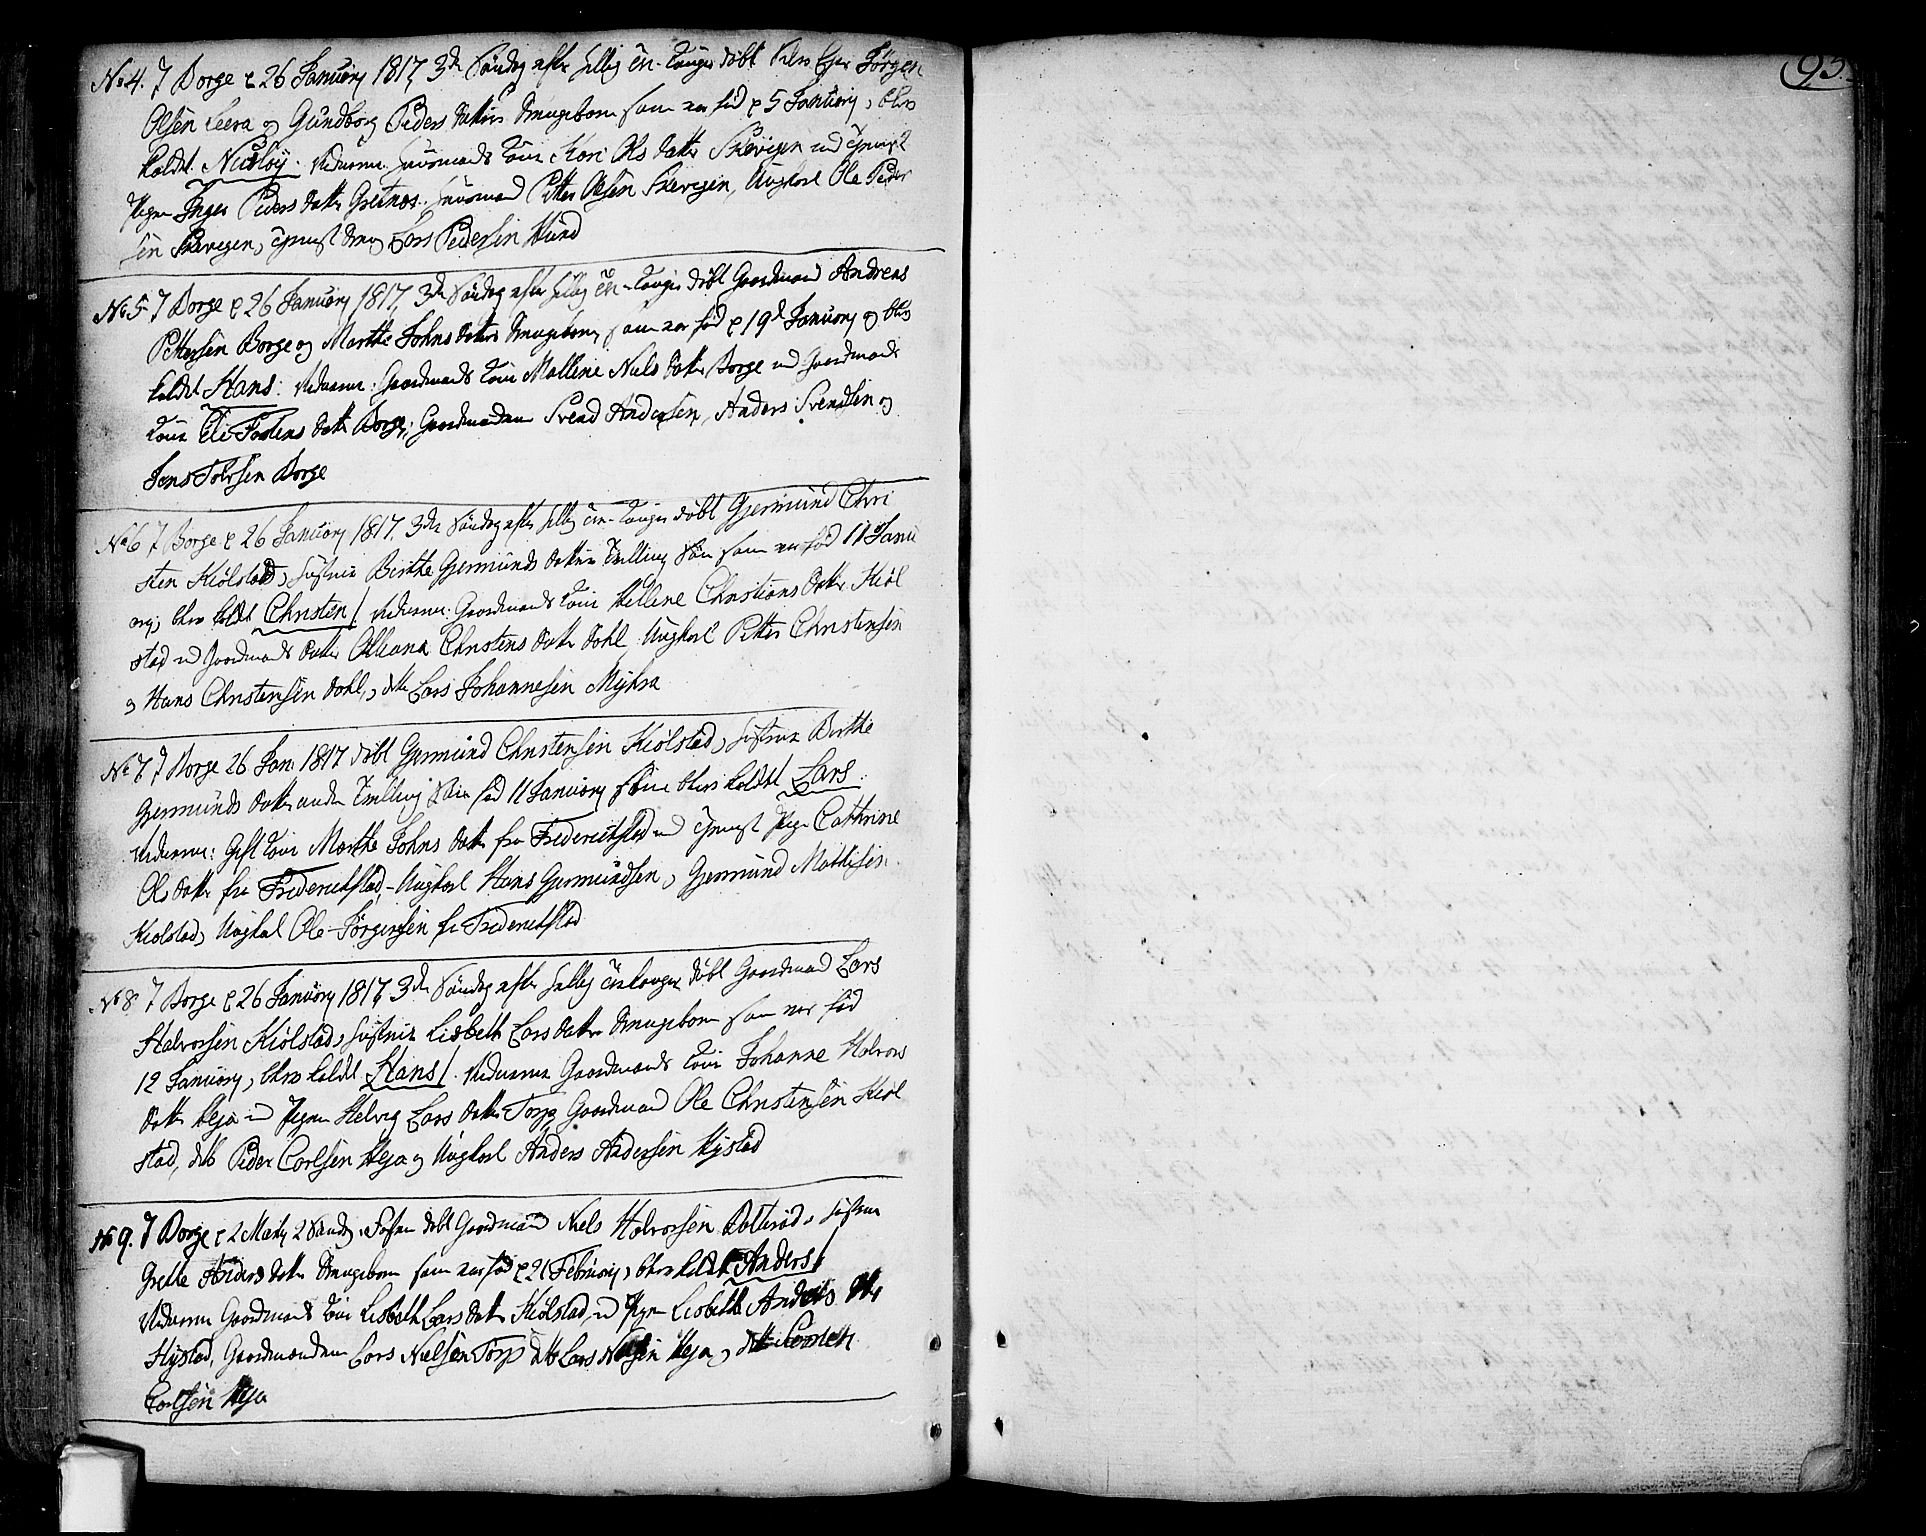 No 4. I Borge d 26 January 1817 3de Söndag efter hellig 3 Konger döbt Jörgen
Olsen Leera og Gundborg Peders datters Drengebarn som var föd d 5 January, blev
kaldet Nicolöy. Vidnerne: huusmands Kone Kari Ols datter Skevigen
Pigen Inger Peders datter Grelnæs. huusmand Petter Olsen Skevigen, Ungkarl Ole Peder
sen Skevigen, Lars Pedersen Hund
No 5 I Borge d 26 January 1817 3de Söndag efter hellig 3 Konger döbt Gaardmand Andreas
Pettersen Borge og Marthe Johns datters Drengebarn, som var föd d 19d January og blev
kaldet Hans: Vidnerne: Gaardmands Kone Mallene Niels datter Borge Gaardmands
Kone Eli Torstens datter Borge; Gaardmændene Svend Andersen, Anders Svendsen og
Jens Tolvsen Borge
No 6 I Borge d 26 January 1817. 3de Söndag efter hellig 3 Konger döbt Gjermund Chri
sten Kiölstad, hustrue Birthe Gjermunds datters Tvilling Sön som var föd 11 Janu
ary, blev kaldt Christen/ Vidnerne: Gaardmands Kone Hellene Christians datter Kiöl
stad Gaardmands datter Olleana Christens datter Dahl, Ungkarl Petter Christensen
og Hans Christensen Dahl, dtto Lars Johannesen Myhra
No 7 I Borge 26 Jan. 1817 döbt Gjermund Christensen Kiölstad, hustrue Birthe
Gjermunds datter anden Tvilling Sön föd 11 January blev kaldet Lars.
Vidnerne: Gift Kone Marthe Johns datter fra Friderichstad Pige Cathrine
Ols datter fra Friderichstad, Ungkarl Hans Gjermundsen, Gjermund Mathisen
Kiolstad, Ungkarl Ole Jörgensen fra Friderichstad
No 8 I Borge d 26 January 1817 3de Söndag efter hellig 3 Konger döbt Gaardmand Lars
Halvorsen Kiölstad, hustrue Lisbeth Lars datter Drengebarn som var föd
12 January, blev kaldet Hans/. Vidnerne Gaardmands Kone Johanne Halvors
datter Heja Pigen Helvig Lars datter Torp Gaardmand Ole Christensen Kiöl
stad, dtto Peder Carlsen Heja og Ungkarl Anders Andersen Hystad
No 9. I Borge d 2 Marty 2 Sönd. i Fasten döbt Gaardmand Niels Halvorsen, hustrue
Grethe Anders datter Drengebarn som var föd d 21 February, blev kaldet Anders/
Vidnerne Gaardmands Kone Lisbeth Lars datter Kiölstad, Pigen Lisbeth Anders
Hystad, Gaardmændene Lars Nielsen Torp dtto Lars Heja, dtto
Carlsen Heja
95.